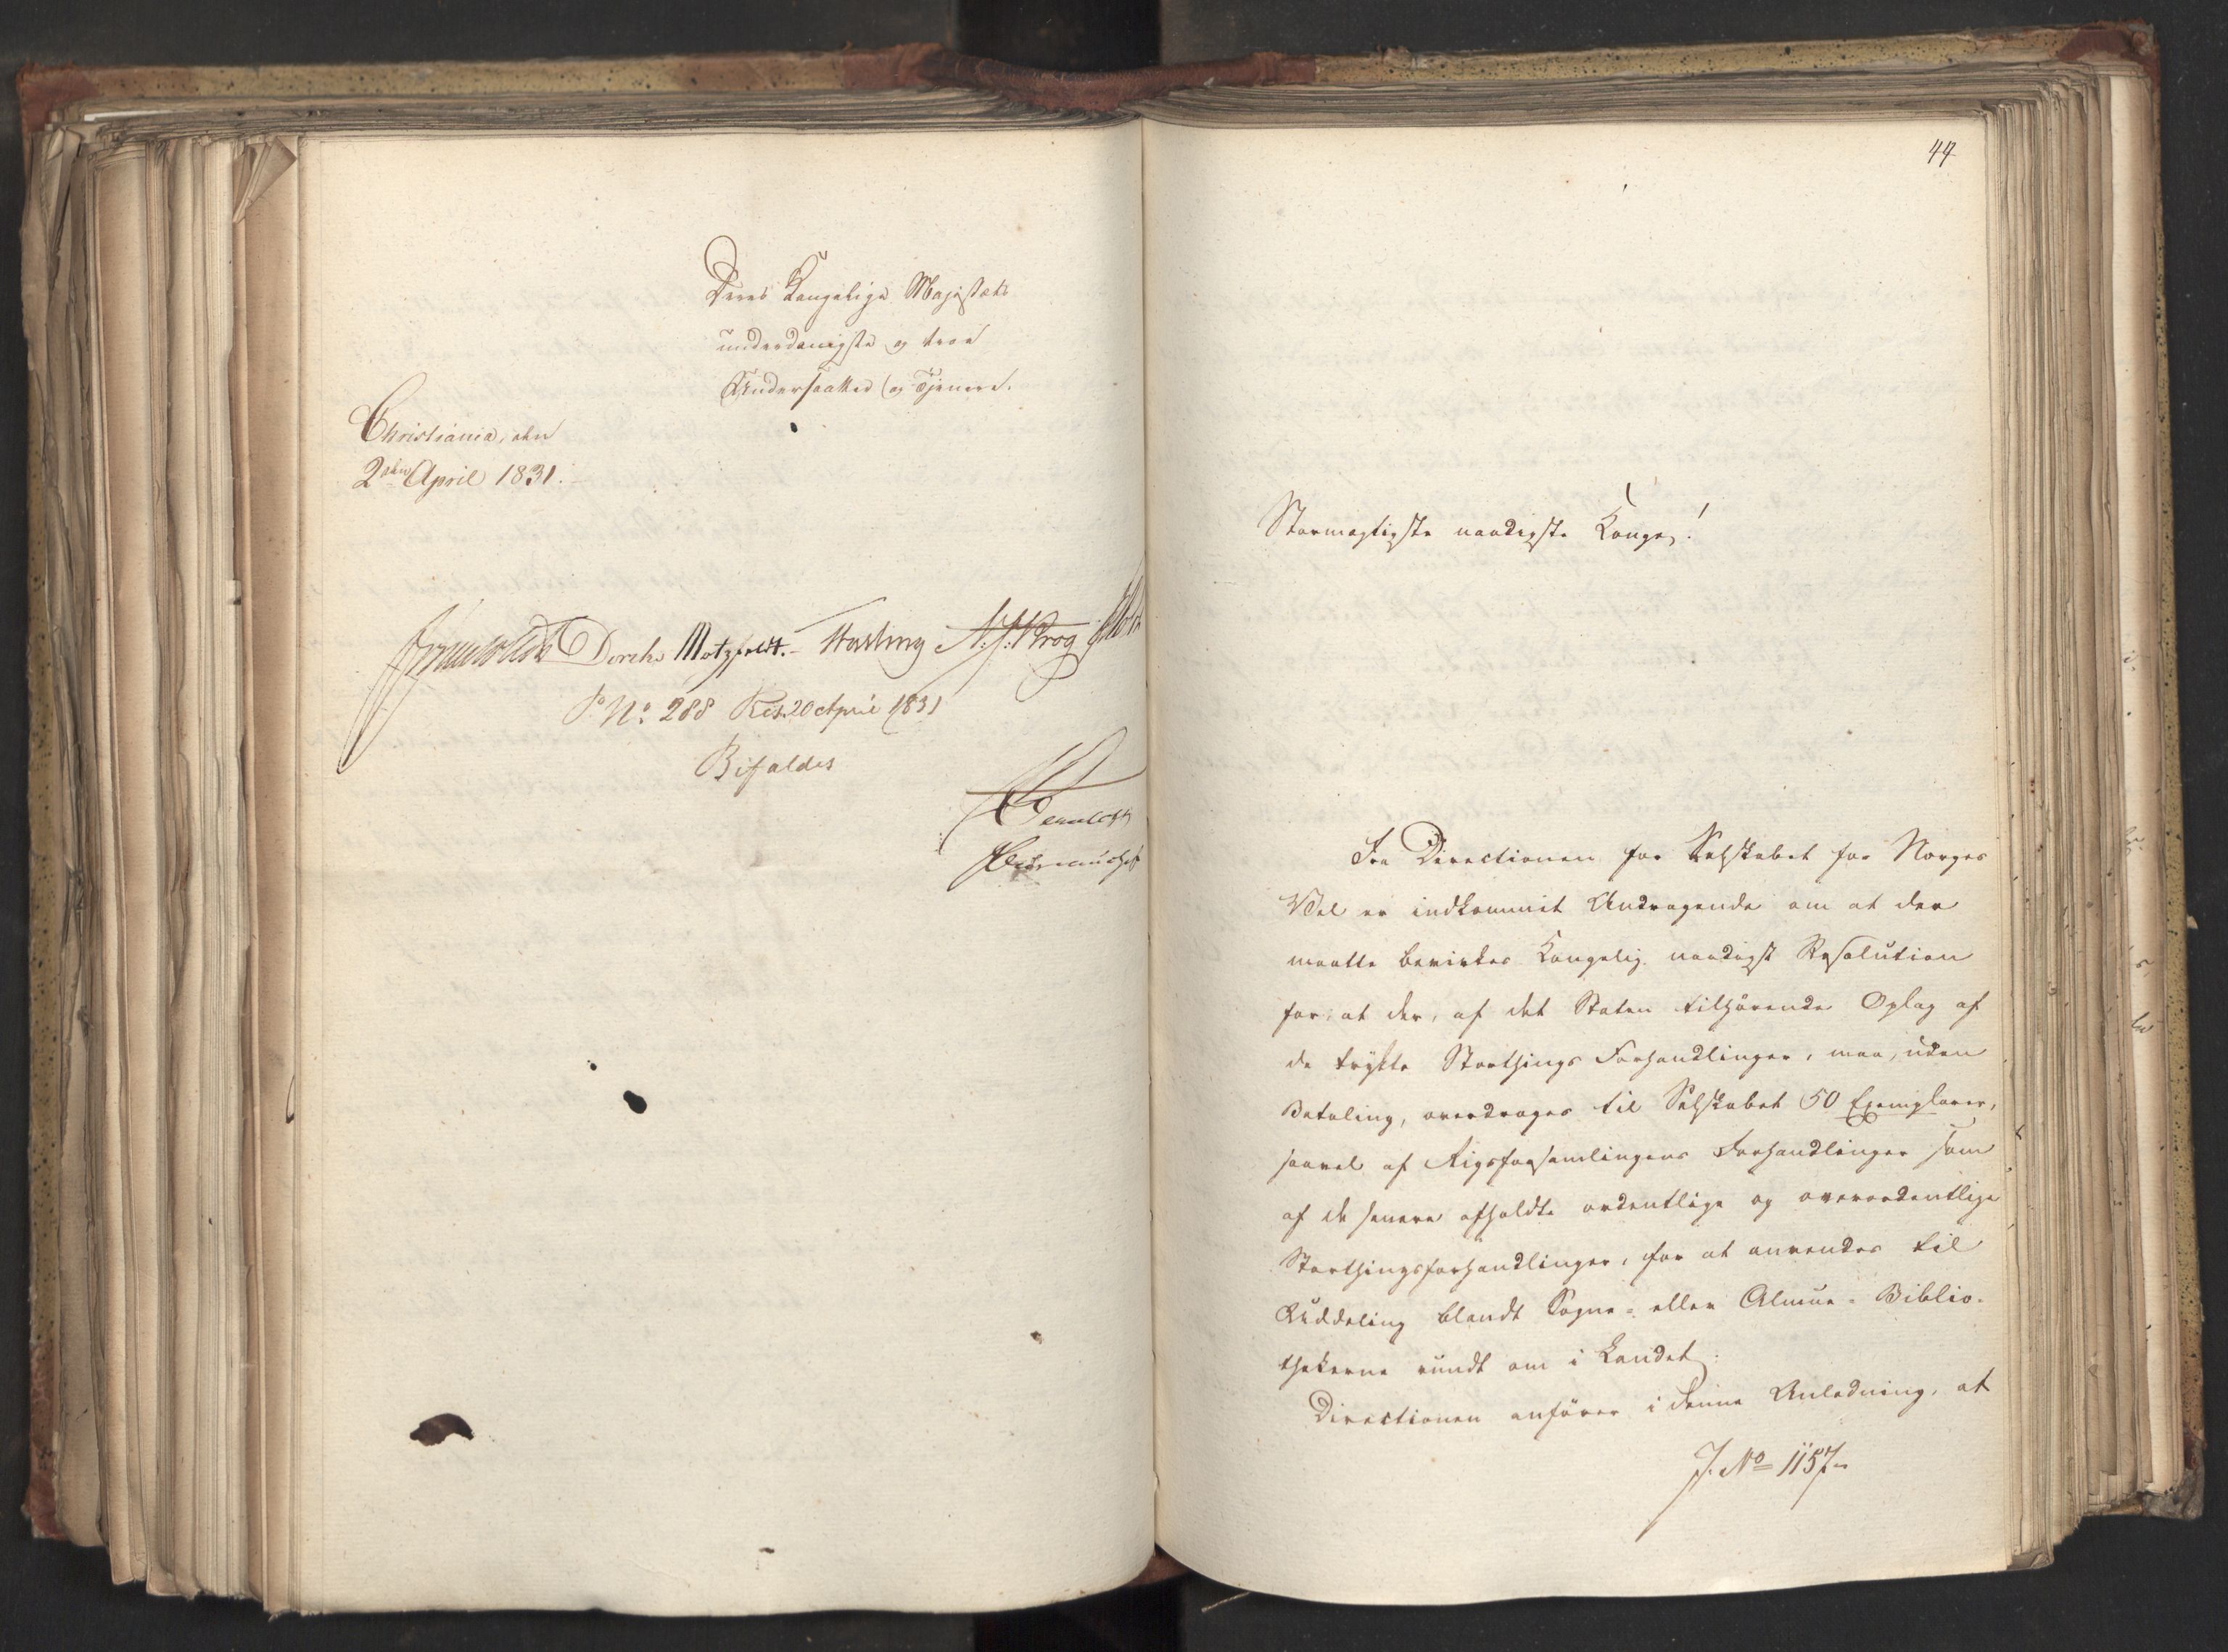 Deres Kongelige Majestæts
underdanigste og troe
Undersaatter og Tjenere.
Christiania, den
2den April 1831.
Diriks Motzfeldt. Vogt
P. No. 288 Res. 20 April 1831
Bifaldes
44
Stormægtigste naadigste Konge!
Fra Directionen for Selskabet for Norges
Vel er indkommet Andragende om at der
maatte bevirkes Kongelig naadigst Resolution
for, at der, af det Staten tilhørende Oplag af
de trykte Storthings Forhandlinger, maa, uden
Betaling, overdrages til Selskabet 50 Exemplarer,
saavel af Rigsforsamlingens Forhandlinger som
af de senere afholdte ordentlige og overordentlige
Storthingsforhandlinger, for at anvendes til
Uddeling blandt Sogne- eller Almue-Biblio-
thekerne rundt om i Landet.
Directionen anfører i denne Anledning, at
J. No 1157